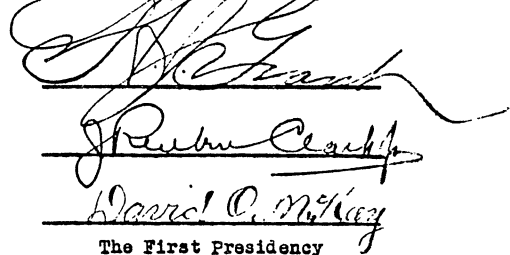 H J. Grant
J Reuben Clark Jr
David O. McKay
The First Presidency